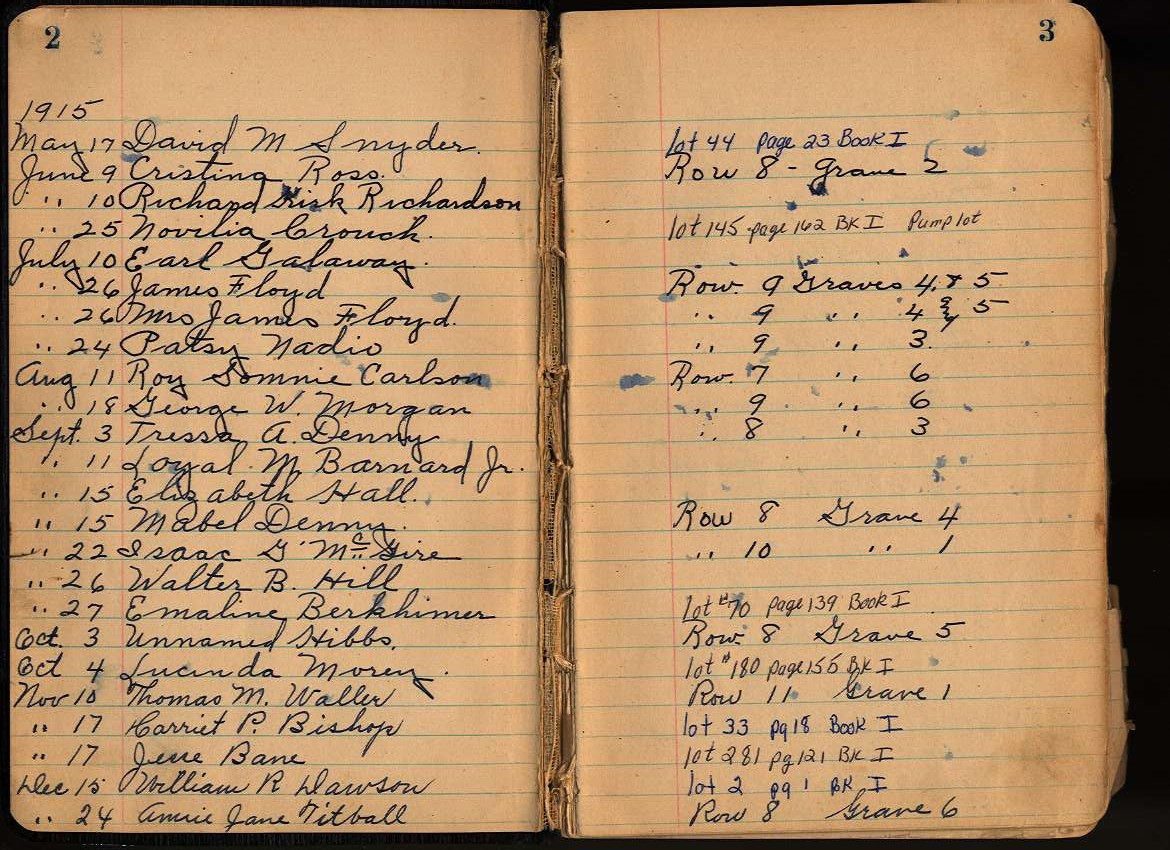 2
1915
May 17 David M Snyder.
June 9 Cristina Ross.
" 10 Richard Risk Richardson
" 25 Novilia Crouch.
July 10 Earl Galaway.
" 26 James Floyd
" 26 Mrs James Floyd.
" 24 Patsy Nadio
Aug 11 Roy Carlson
" 18 George W. Morgan
Sept. 3 Tressa A. Denny
" 11 Loyal M Barnard Jr.
" 15 Elizabeth Hall.
" 15 Mabel Denny.
" 22 Isaac G McGire
" 26 Walter B. Hill
" 27 Emaline Berkhimer
Oct. 3 Unnamed Hibbs.
Oct 4 Lucinda Morey.
Nov 10 Thomas M. Waller
" 17 Harriet P. Bishop
" 17 Bane
Dec 15 William R Dawson
" 24 Annie Jane Titball
3
lot 44 page 23 Book I
Row 8 - Grave 2
lot 145 page 162 BK I Pump lot
Row. 9 Graves 4 & 5
" 9 " 4 & 5
" 9 " 3.
Row. 7 " 6
" 9 " 6
" 8 " 3
Row 8 Grave 4
" 10 " 1
lot #70 page 139 Book I
Row 8 Grave 5
lot #180 page 155 BK I
Row 11 Grave 1
lot 33 pg 18 Book I
lot 281 pg 121 BK I
lot 2 pg 1 BK I
Row 8 Grave 6